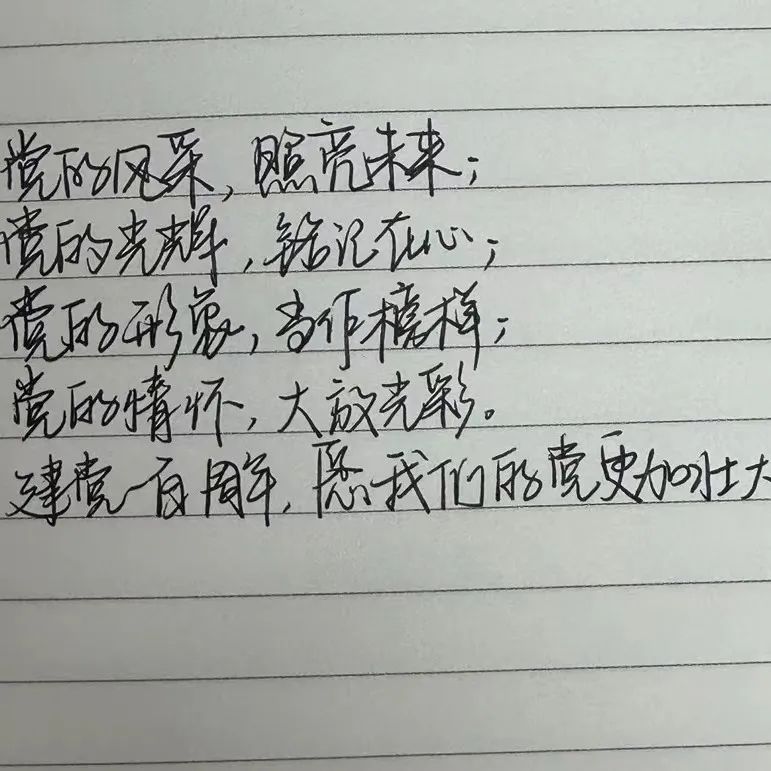 党的风采,照亮未来;
党的光辉,铭记在心;
党的形象,当作榜样;
党的情怀,大放光彩。
建党一百周年,愿我们的党更加壮大